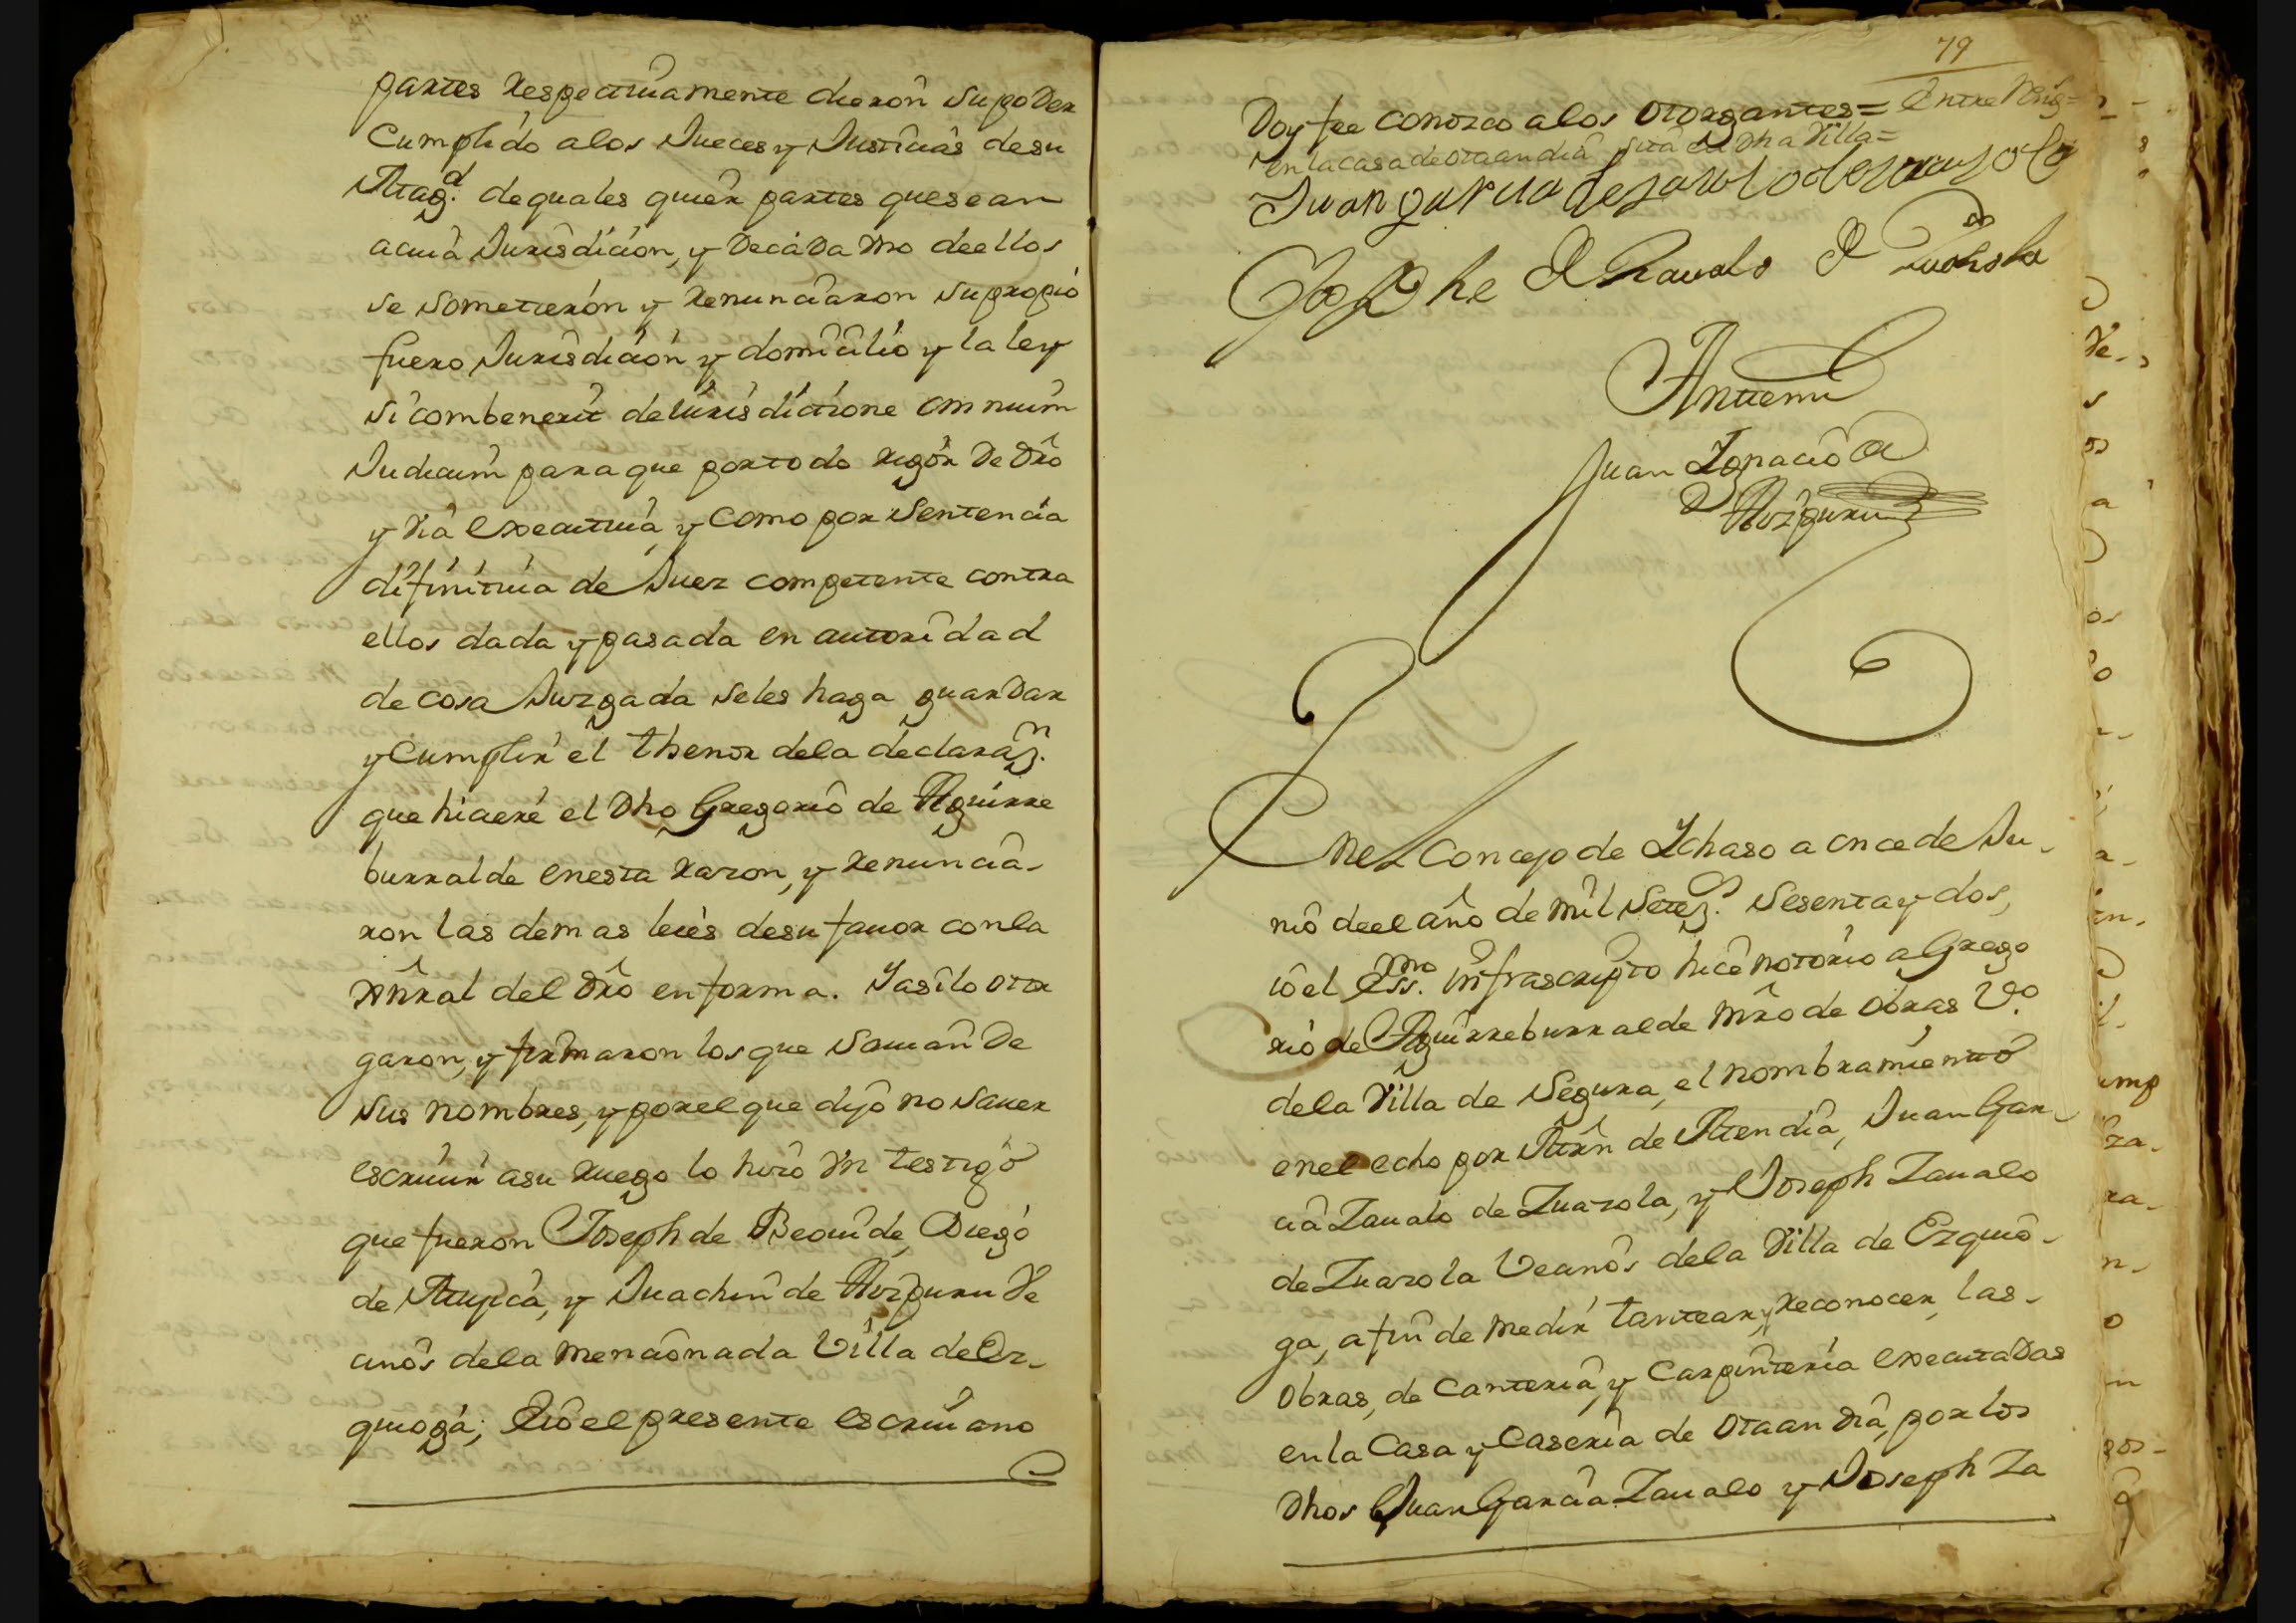 partes respectiuamente dieron su poder
Cumplido alos Jueces y Justicias de su
Magd. de quales quier partes que sean
a cuia Jurisdicion, y de cada vno de ellos
se sometieron y renunciaron su propio
fuero Jurisdicion y domicilio y la ley
si combenerit de Iurisdictione omnium
Judicum para que por todo rigor de dro
y via executiua, y como por Sentencia
difinitiua de Juez competente contra
ellos dada y pasada en autoridad
de cosa Juzgada seles haga guardar
y Cumplir el thenor dela declarazn.
que hiciere el dho Gregorio de Aguirre
burralde en esta razon, y renuncia-
ron las demas leies de su fauor con la
gñral del dro en forma. Y asi lo otor
garon, y firmaron los que sauian de
sus nombres, y por el que dijo no sauer
escriuir a su ruego lo hizo vn testigo
que fueron Joseph de Beguide, Diego
de Mugica, y Juachin de Aizpuru ve
cinos dela mencionada Villa de Ez-
quioga; E io el presente escriuano
79
Doy fee conozco alos otorgantes= Entre Reng=
en la casa de otaandia sita en dha Villa=
Juan garcia de zaualo de zuazola
Joseph de Zaualo de Zuazola
Antemi
Juan Ignacio de
Aizpuru
En el Concejo de Ichaso a once de Ju-
nio de el año de mil setezs. sesenta y dos,
io el Essno. infrascripto hice notorio a Grego
rio de Aguirreburralde mro de obras Vo.
dela Villa de Segura, el nombramiento
en el echo por Mrn de Atendia, Juan Gar-
cia Zaualo de Zuazola, y Joseph Zaualo
de Zuazola Vecinos dela Villa de Ezquio-
ga, a fin de medir tantear, y reconocer, las-
obras, de Canteria, y Carpinteria executadas
en la Casa y Caseria de otaandia, por los
dhos Juan Garcia Zaualo y Joseph Za